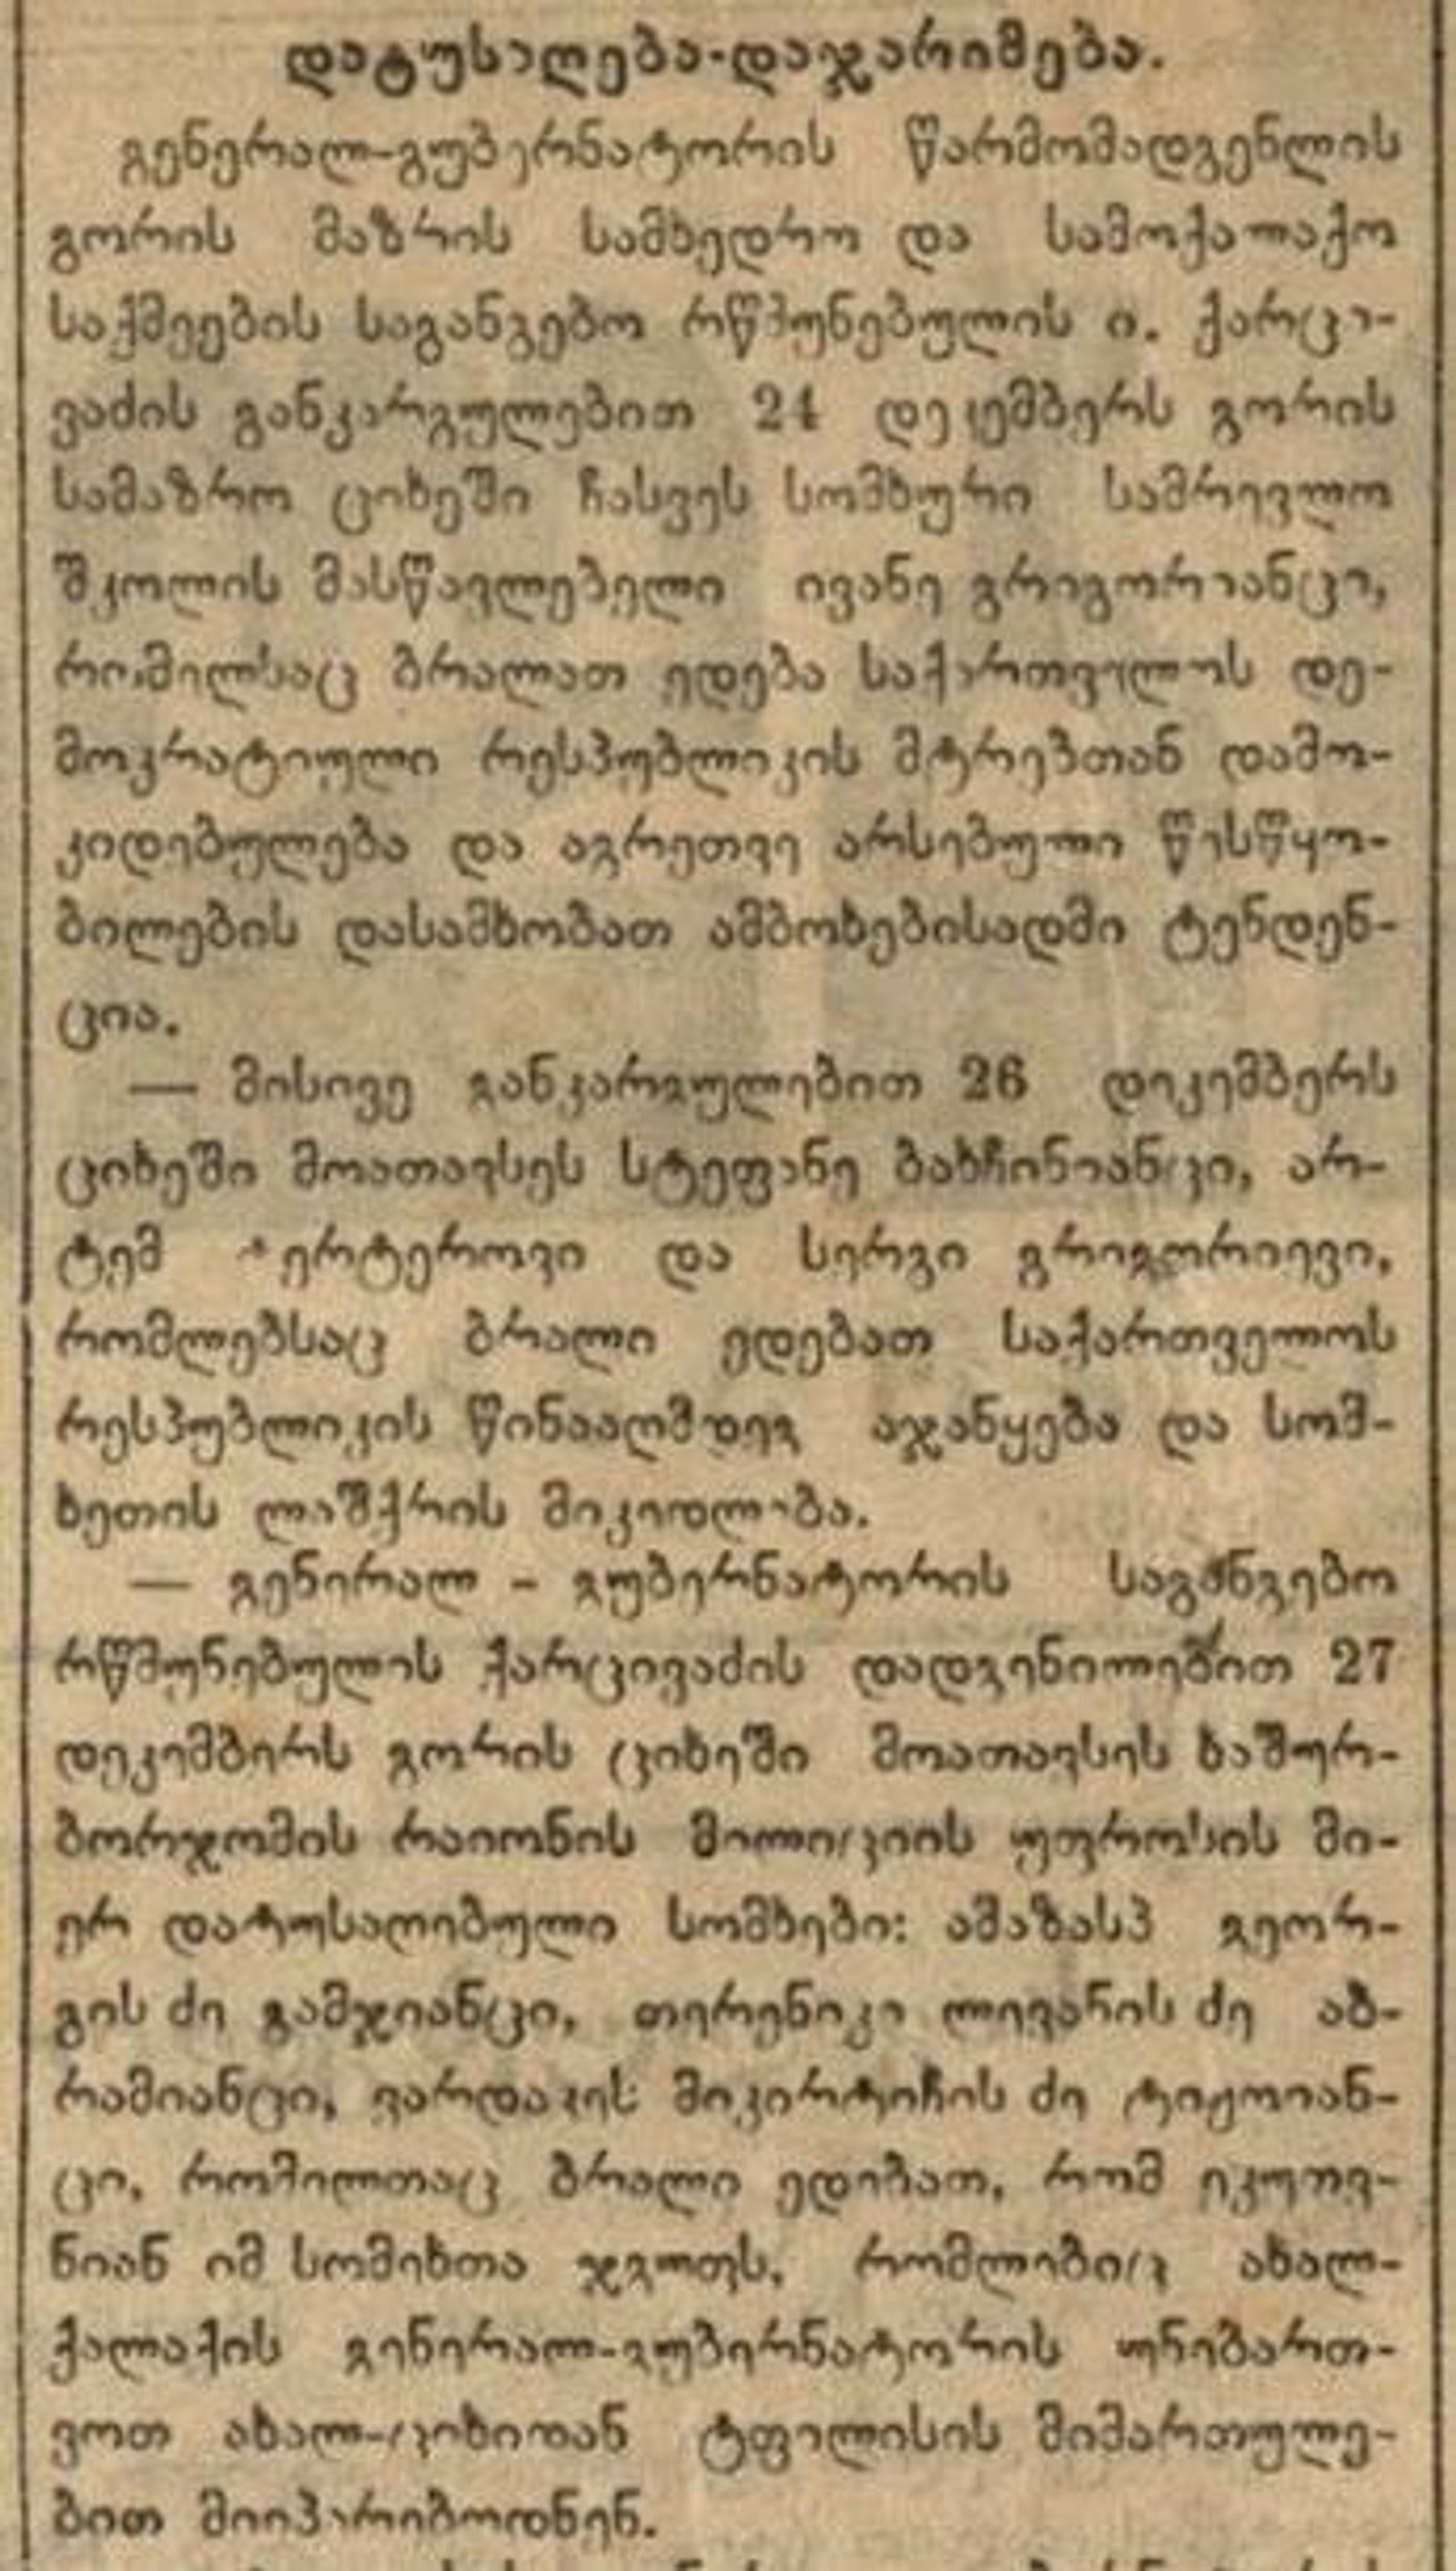 დატუსაღება-დაჯარიმება.
გენერალ-გუბერნატორის წარმომადგენლის
გორის მაზრის სამხედრო და სამოქალაქო
საქმეების საგანგებო რწმუნებულის ი. ქარცი-
ვაძის განკარგულებით 24 დეკემბერს გორის
სამაზრო ციხეში ჩასვეს სომხური სამრევლო
შკოლის მასწავლებელი ივანე გრიგორიანცი,
რომელსაც ბრალათ ედება საქართველოს დე-
მოკრატიული რესპუბლიკის მტრებთან დამო-
კიდებულება და აგრეთვე არსებული წესწყო-
ბილების დასამხობათ ამბოხებისადმი ტენდენ-
ცია.
— მისივე განკარგულებით 26 დეკემბერს
ციხეში მოათავსეს სტეფანე ბახჩინიანცი, არ-
ტემ და სერგი გრიგორიევი,
რომლებსაც ბრალი ედებათ საქართველოს
რესპუბლიკის წინააღმდეგ აჯანყება და სომ-
ხეთის ლაშქრის მიკედლება.
— გენერალ - გუბერნატორის საგანგებო
რწმუნებულის ქარცივაძის დადგენილებით 27
დეკემბერს გორის ციხეში მოათავსეს ხაშურ-
ბორჯომის რაიონის მილიციის უფროსის მი-
ერ დატუსაღებული სომხები: ამაზასპ გეორ-
გის ძე გამჯიანცი, თერენიკე ლევანის ძე აბ-
რამიანცი, მიკირტიჩის ძე
ცი, რომელთაც ბრალი ედებათ, რომ ეკუთვ-
ნიან იმ სომეხთა ჯგუფს, რომლებიც ახალ-
ქალაქის გენერალ-გუბერნატორის უნებართ-
ვოთ ახალ-ციხიდან ტფილისის მიმართულე-
ბით მიიპარებოდნენ.